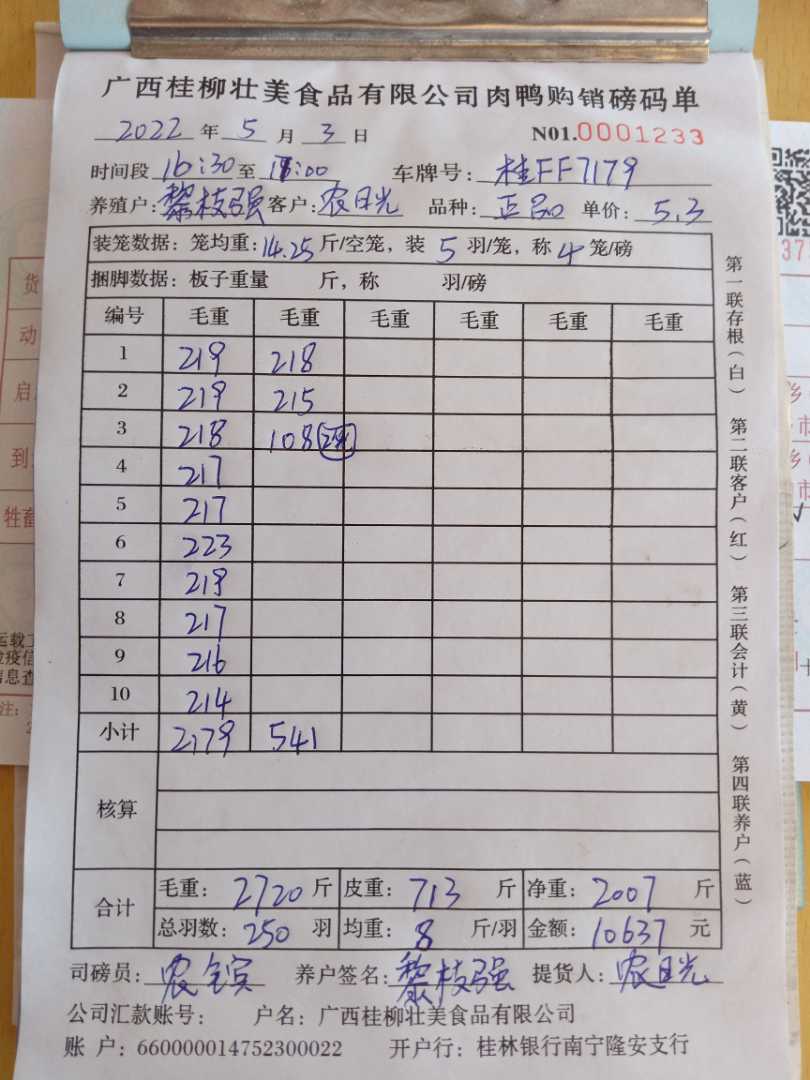 广西桂柳壮美食品有限公司肉鸭购销磅码单
2022 年 5 月 3 日 N01.0001233
时间段 16:30 至 18:00 车牌号: 桂FF7179
养殖户: 黎枝强 客户: 农日光 品种: 正品 单价: 5.3
装笼数据: 笼均重: 14.25 斤/空笼, 装 5 羽/笼, 称 4 笼/磅
捆脚数据: 板子重量 斤, 称 羽/磅
编号 毛重 毛重 毛重 毛重 毛重 毛重
1 219 218
2 219 215
3 218 108
4 217
5 217
6 223
7 219
8 217
9 216
10 214
小计 2179 541
核算
合计 毛重: 2720 斤 皮重: 713 斤 净重: 2007 斤
总羽数: 250 羽 均重: 8 斤/羽 金额: 10637 元
司磅员: 农 养户签名: 黎枝强 提货人: 农日光
公司汇款账号: 户名: 广西桂柳壮美食品有限公司
账 户: 660000014752300022 开户行: 桂林银行南宁隆安支行
第一联存根(白) 第二联客户(红) 第三联会计(黄) 第四联养户(蓝)
货
动
启
到
牲畜